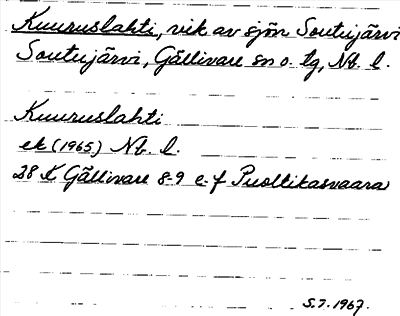 Kuuruslahti, vik av sjön Soutujärvi
Soutujärvi, Gällivare sn o. tg, Nb. l.
Kuuruslahti
ek (1965) Nb. l.
28 K Gällivare 8-9 e-f Puoltikasvaara
S.J. 1967.